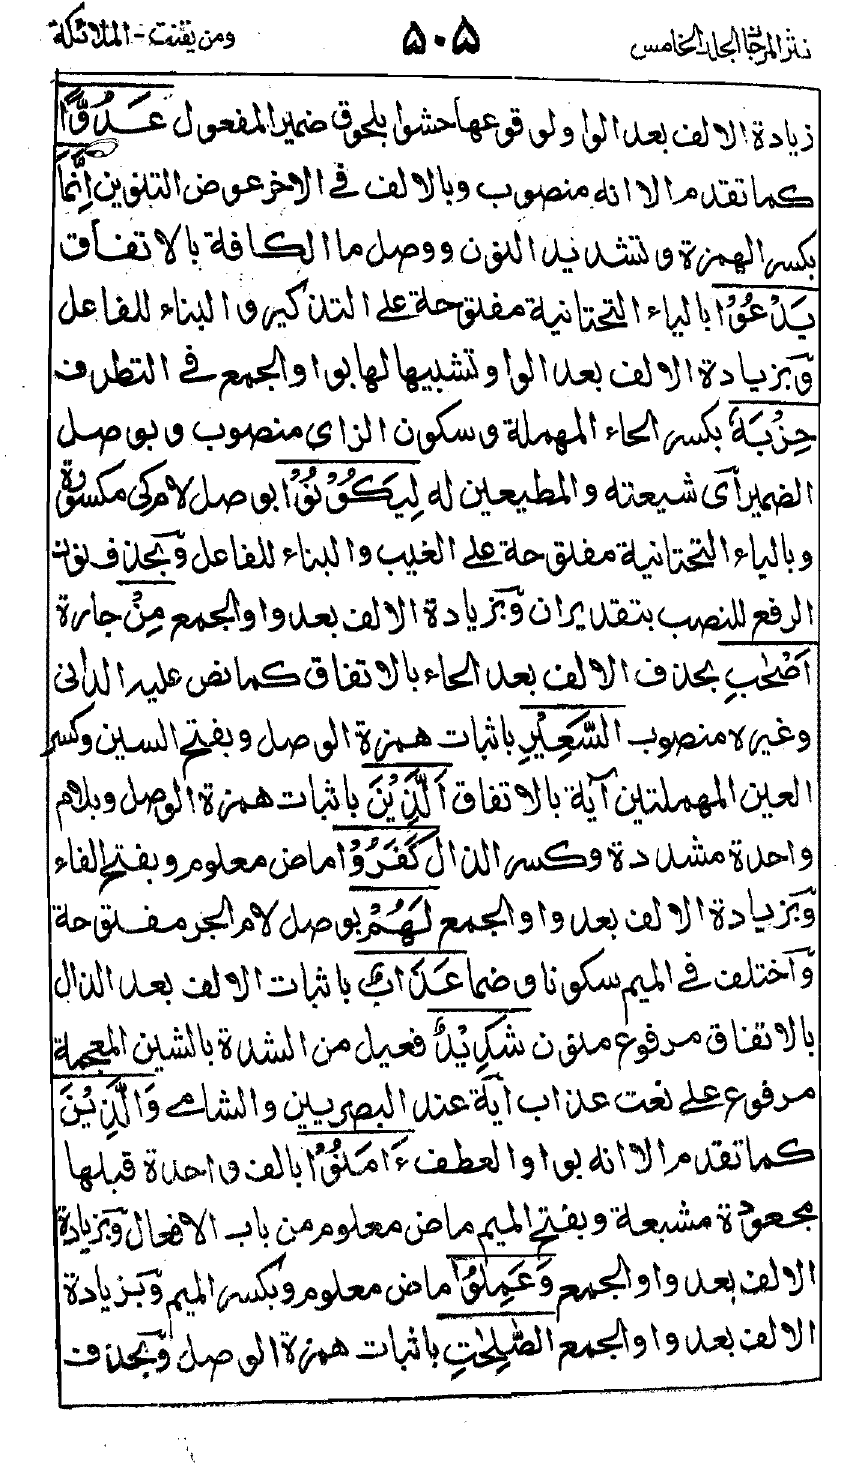 نثر المرجان المجلد الخامس ۵۰۵ ومن يقنت - الملائكة
زيادة الالف بعد الواو لوقوعها حشوا بلحوق ضمير المفعول عَدُوًّا
كما تقدم الا انه منصوب وبالالف فى الاخر عوض التنوين اِنَّمَا
بكسر الهمزة وتشديد النون ووصل ما الكافة بالاتفاق
يَدْعُوْا بالياء التحتانية مفتوحة على التذكير والبناء للفاعل
وبزيادة الالف بعد الواو تشبيها لها بواو الجمع فى التطرف
حِزْبَهٗ بكسر الحاء المهملة وسكون الزاى منصوب وبوصل
الضمير اى شيعته والمطيعين له لِيَكُوْنُوْا بوصل لام كى مكسورة
وبالياء التحتانية مفتوحة على الغيب والبناء للفاعل وبحذف نون
الرفع للنصب بتقدير ان وبزيادة الالف بعد واو الجمع مِنْ جارة
اَصْحٰبِ بحذف الالف بعد الحاء بالاتفاق كما نص عليه الدانى
وغيره منصوب السَّعِيْرِ باثبات همزة الوصل وبفتح السين وكسر
العين المهملتين آية بالاتفاق اَلَّذِيْنَ باثبات همزة الوصل وبلام
واحدة مشددة وكسر الذال كَفَرُوْا ماض معلوم وبفتح الفاء
وبزيادة الالف بعد واو الجمع لَهُمْ بوصل لام الجر مفتوحة
واختلف فى الميم سكونا وضما عَذَابٌ باثبات الالف بعد الذال
بالاتفاق مرفوع منون شَدِيْدٌ فعيل من الشدة بالشين المعجمة
مرفوع على نعت عذاب آية عند البصريين والشامى وَالَّذِيْنَ
كما تقدم الا انه بواو العطف ءَامَنُوْا بالف واحدة قبلها
مجعودة مشبعة وبفتح الميم ماض معلوم من باب الافعال وبزيادة
الالف بعد واو الجمع وَعَمِلُوْا ماض معلوم وبكسر الميم وبزيادة
الالف بعد واو الجمع الصّٰلِحٰتِ باثبات همزة الوصل وبحذف